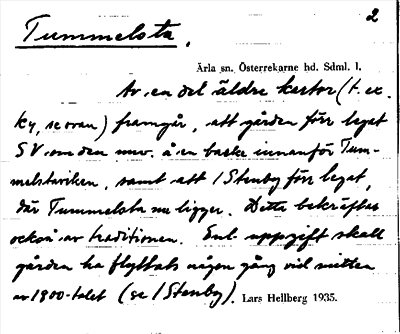 2
Tummelsta.
Ärla sn, Österrekarne hd. Sdml. l.
Av en del äldre kartor (t. ex.
ky, se ovan) framgår, att gården förr legat
SV om den nuv. å en backe innanför Tum-
melstaviken, samt att / Stenby förr legat,
där Tummelsta nu ligger. Detta bekräftas
också av traditionen. Enl. uppgift skall
gården ha flyttats någon gång vid mitten
av 1800-talet (se / Stenby). Lars Hellberg 1935.